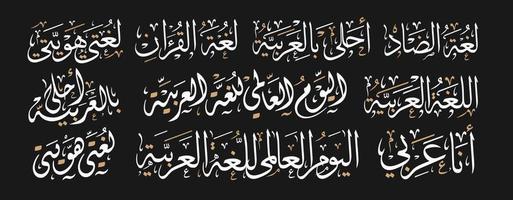 لغة الضاد أحلى بالعربية لغة القرآن لغتي هويتي
اللغة العربية اليوم العالمي للغة العربية بالعربية أحلى
أنا عربي اليوم العالمي للغة العربية لغتي هويتي